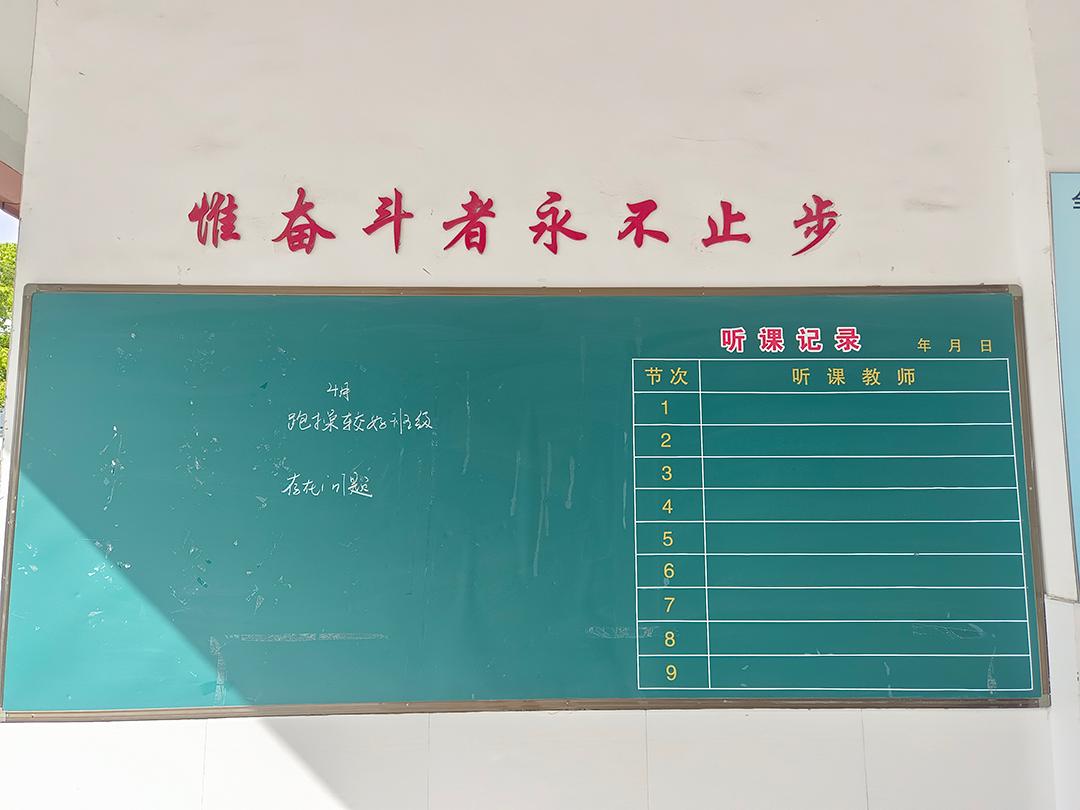 惟奋斗者永不止步
4月
跑操较好班级
存在问题
听课记录 年 月 日
节次 听课教师
1
2
3
4
5
6
7
8
9